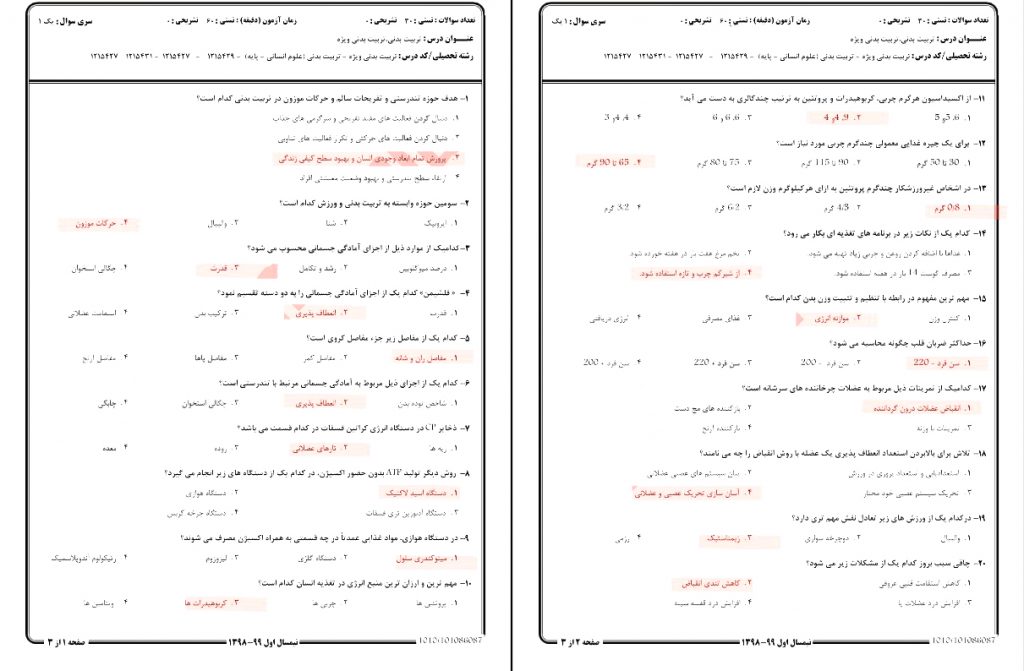 تعداد سوالات : تستی : ۳۰ تشریحی : ۰
زمان آزمون (دقیقه) : تستی : ۶۰ تشریحی : ۰
سری سوال : یک ۱
عنـــوان درس : تربیت بدنی،تربیت بدنی ویژه
رشته تحصیلی/کد درس : تربیت بدنی ویژه - تربیت بدنی (علوم انسانی - پایه) ۱۲۱۵۴۳۹ - ۱۲۱۵۴۲۷ - ۱۲۱۵۴۳۱ ۱۲۱۵۴۲۷
۱- هدف حوزه تندرستی و تفریحات سالم و حرکات موزون در تربیت بدنی کدام است؟
۱. دنبال کردن فعالیت های مفید تفریحی و سرگرمی های جذاب
۲. دنبال کردن فعالیت های حرکتی و تکرر فعالیت های تناوبی
۳. پرورش تمام ابعاد وجودی انسان و بهبود سطح کیفی زندگی
۴. ارتقاء سطح تندرستی و بهبود وضعیت معیشتی افراد
۲- سومین حوزه وابسته به تربیت بدنی و ورزش کدام است؟
۱. ایروبیک ۲. شنا ۳. والیبال ۴. حرکات موزون
۳- کدامیک از موارد ذیل از اجزای آمادگی جسمانی محسوب می شود؟
۱. درصد میوگلوبین ۲. رشد و تکامل ۳. قدرت ۴. چگالی استخوان
۴- « فلشیمن» کدام یک از اجزای آمادگی جسمانی را به دو دسته تقسیم نمود؟
۱. قدرت ۲. انعطاف پذیری ۳. ترکیب بدن ۴. استقامت عضلانی
۵- کدام یک از مفاصل زیر جزء مفاصل کروی است؟
۱. مفاصل ران و شانه ۲. مفاصل کمر ۳. مفاصل پاها ۴. مفاصل آرنج
۶- کدام یک از اجزای ذیل مربوط به آمادگی جسمانی مرتبط با تندرستی است؟
۱. شاخص توده بدن ۲. انعطاف پذیری ۳. چگالی استخوان ۴. چابکی
۷- ذخایر CP در دستگاه انرژی کراتین فسفات در کدام قسمت می باشد؟
۱. ریه ها ۲. تارهای عضلانی ۳. روده ۴. معده
۸- روش دیگر تولید ATP بدون حضور اکسیژن، در کدام یک از دستگاه های زیر انجام می گیرد؟
۱. دستگاه اسید لاکتیک ۲. دستگاه هوازی
۳. دستگاه آدنوزین تری فسفات ۴. دستگاه چرخه کربس
۹- در دستگاه هوازی، مواد غذایی عمدتا در چه قسمتی به همراه اکسیژن مصرف می شوند؟
۱. میتوکندری سلول ۲. دستگاه گلژی ۳. لیزوزوم ۴. رتیکولوم آندوپلاسمیک
۱۰- مهم ترین و ارزان ترین منبع انرژی در تغذیه انسان کدام است؟
۱. پروتئین ها ۲. چربی ها ۳. کربوهیدرات ها ۴. ویتامین ها
1010/101086087
نیمسال اول ۹۹-۱۳۹۸
صفحه ۱ از ۳
تعداد سوالات : تستی : ۳۰ تشریحی : ۰
زمان آزمون (دقیقه) : تستی : ۶۰ تشریحی : ۰
سری سوال : ۱ یک
عنـــوان درس : تربیت بدنی،تربیت بدنی ویژه
رشته تحصیلی/کد درس : تربیت بدنی ویژه - تربیت بدنی (علوم انسانی - پایه) ۱۲۱۵۴۳۹ - ۱۲۱۵۴۲۷ - ۱۲۱۵۴۳۱ ۱۲۱۵۴۲۷
۱۱- از اکسیداسیون هرگرم چربی، کربوهیدرات و پروتئین به ترتیب چندکالری به دست می آید؟
۱. 6، 5و 5 ۲. 9، 4و 4 ۳. 6، 6 و 6 ۴. 4، 4و 3
۱۲- برای یک جیره غذایی معمولی چندگرم چربی مورد نیاز است؟
۱. 30 تا 50 گرم ۲. 90 تا 115 گرم ۳. 75 تا 80 گرم ۴. 65 تا 90 گرم
۱۳- در اشخاص غیرورزشکار چندگرم پروتئین به ازای هرکیلوگرم وزن لازم است؟
۱. 0/8 گرم ۲. 4/3 گرم ۳. 6/2 گرم ۴. 3/2 گرم
۱۴- کدام یک از نکات زیر در برنامه های تغذیه ای بکار می رود؟
۱. غذاها با اضافه کردن روغن و چربی زیاد تهیه می شود. ۲. تخم مرغ هفت بار در هفته خورده شود.
۳. مصرف گوشت 14 بار در هفته استفاده شود. ۴. از شیرکم چرب و تازه استفاده شود.
۱۵- مهم ترین مفهوم در رابطه با تنظیم و تثبیت وزن بدن کدام است؟
۱. کنترل وزن ۲. موازنه انرژی ۳. غذای مصرفی ۴. انرژی دریافتی
۱۶- حداکثر ضربان قلب چگونه محاسبه می شود؟
۱. سن فرد - 220 ۲. سن فرد - 200 ۳. سن فرد + 220 ۴. سن فرد + 200
۱۷- کدامیک از تمرینات ذیل مربوط به عضلات چرخاننده های سرشانه است؟
۱. انقباض عضلات درون گرداننده ۲. بازکننده های مچ دست
۳. تمرینات با وزنه ۴. بازکننده آرنج
۱۸- تلاش برای بالابردن استعداد انعطاف پذیری یک عضله با روش انقباض را چه می نامند؟
۱. استعدادیابی و استعداد پروری در ورزش ۲. بیان سیستم های عصبی عضلانی
۳. تحریک سیستم عصبی خود مختار ۴. آسان سازی تحریک عصبی و عضلانی
۱۹- درکدام یک از ورزش های زیر تعادل نقش مهم تری دارد؟
۱. والیبال ۲. دوچرخه سواری ۳. ژیمناستیک ۴. رزمی
۲۰- چاقی سبب بروز کدام یک از مشکلات زیر می شود؟
۱. کاهش استقامت قلبی عروقی ۲. کاهش تندی انقباض
۳. افزایش درد عضلات پا ۴. افزایش درد قفسه سینه
1010/101086087
نیمسال اول ۹۹-۱۳۹۸
صفحه ۲ از ۳